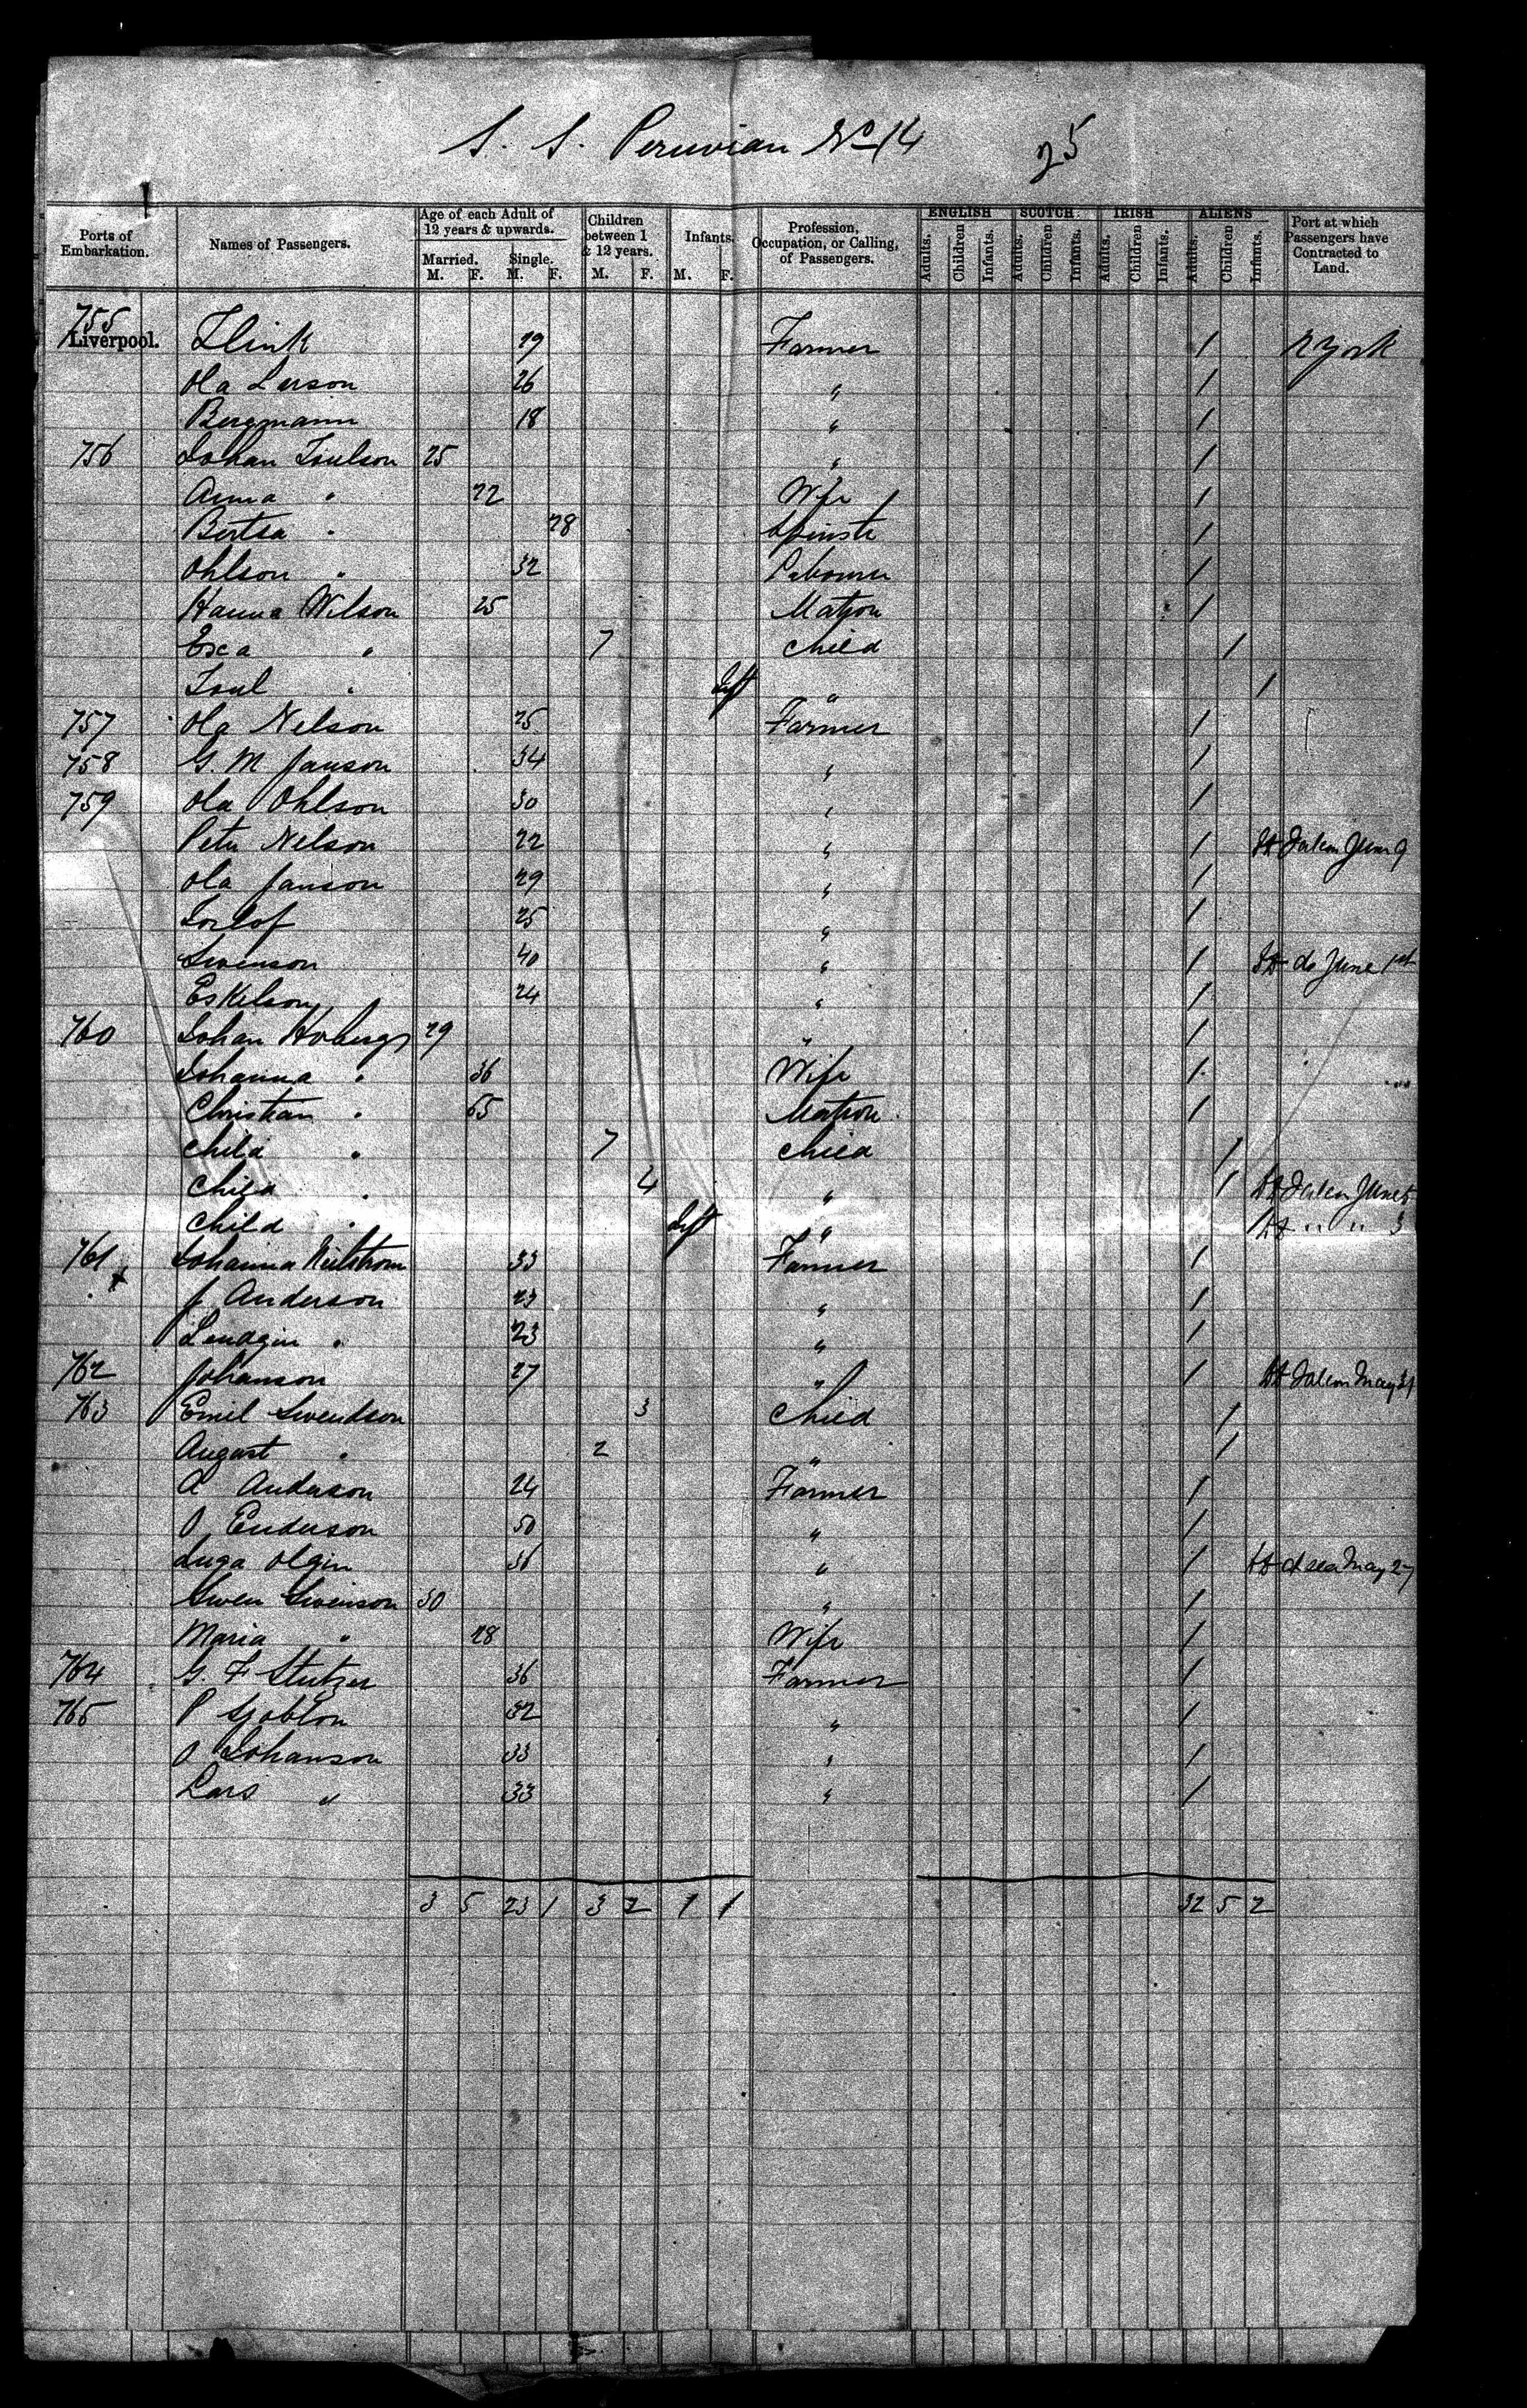 S. S. Peruvian No 14 25
Ports of Embarkation. Names of Passengers. Age of each Adult of 12 years & upwards. Children between 1 & 12 years. Infants. Profession, Occupation, or Calling, of Passengers. ENGLISH SCOTCH IRISH ALIENS Port at which Passengers have Contracted to Land.
Married. Single.
M. F. M. F. M. F. M. F. Adults. Children Infants. Adults. Children Infants. Adults. Children Infants. Adults. Children Infants.
755
Liverpool. Flink 19 Farmer 1 N York
Ola Larson 26 " 1
Bergmann 18 " 1
756 Johan 25 " 1
Anna " 22 Wife 1
" 28 1
Ohlson " 32 Labourer 1
Hanna Wilson 25 Matron 1
" 7 Child 1
" Inft " 1
757 Ola Nelson 25 Farmer 1
758 G. M Janson 34 " 1
759 Ola Ohlson 30 " 1
Peter Nelson 22 " 1 June 9
Ola Janson 29 " 1
25 " 1
Swenson 40 " 1 do June 1st
Eskelson 24 " 1
760 Johan Hoberg 29 " 1
Johanna " 36 Wife 1
Christian " 65 Matron 1
Child " 7 Child 1
Child " 4 " 1 June 5
Child " Inft " " " 3
761 Johanna 33 Farmer 1
J Anderson 23 " 1
" 23 " 1
762 Johanson 27 " 1 May 31
763 Emil Swendson 3 Child 1
August " 2 " 1
A Anderson 24 Farmer 1
O Enderson 50 " 1
Olgin 36 " 1 at sea May 27
Swen Swenson 30 " 1
Maria " 28 Wife 1
764 G. F Stutzer 36 Farmer 1
765 P Sjoblon 32 " 1
O Johanson 33 " 1
Lars " 33 " 1
3 5 23 1 3 2 1 1 32 5 2